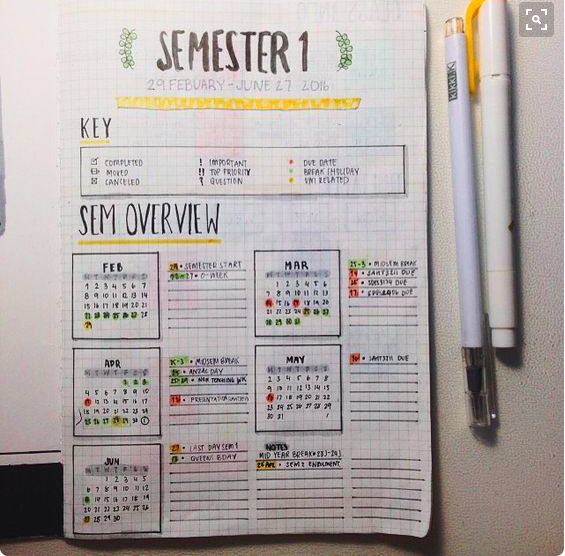 SEMESTER 1
29 FEBUARY - JUNE 27 2016
KEY
COMPLETED
MOVED
CANCELED
! IMPORTANT
!! TOP PRIORITY
? QUESTION
DUE DATE
BREAK/HOLIDAY
UNI RELATED
SEM OVERVIEW
FEB
M T W T F S S
1 2 3 4 5 6 7
8 9 10 11 12 13 14
15 16 17 18 19 20 21
22 23 24 25 26 27 28
29
29 • SEMESTER START
22-27 • O-WEEK
MAR
M T W T F S S
1 2 3 4 5 6
7 8 9 10 11 12 13
14 15 16 17 18 19 20
21 22 23 24 25 26 27
28 29 30 31
25-3 • MIDSEM BREAK
DUE
DUE
DUE
APR
M T W T F S S
1 2 3
4 5 6 7 8 9 10
11 12 13 14 15 16 17
18 19 20 21 22 23 24
25 26 27 28 29 30 1
25-3 • MIDSEM BREAK
25 • ANZAC DAY
NON TEACHING WK
PRESENTATION
MAY
M T W T F S S
2 3 4 5 6 7 8
9 10 11 12 13 14 15
16 17 18 19 20 21 22
23 24 25 26 27 28 29
30 31
16 • DUE
JUN
M T W T F S S
1 2 3 4 5
6 7 8 9 10 11 12
13 14 15 16 17 18 19
20 21 22 23 24 25 26
27 28 29 30
27 • LAST DAY SEM 1
QUEENS BDAY
NOTES
MID YEAR BREAK
SEM 2 ENROLMENT